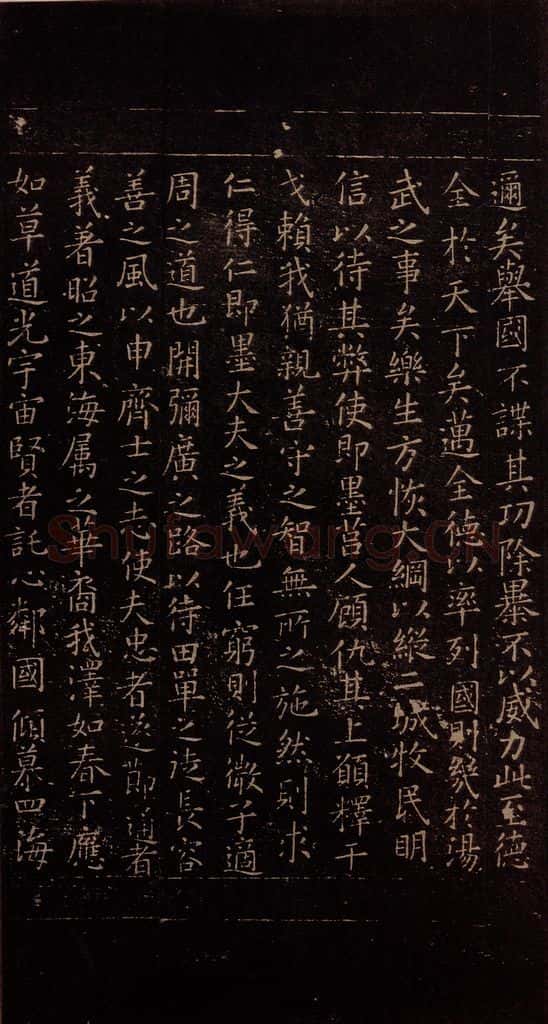 邇矣舉國不謀其功除暴不以威力此至德
全於天下矣邁全德以率列國則幾於湯
武之事矣樂生方恢大綱以縱二城牧民明
信以待其弊使即墨莒人顧仇其上願釋干
戈賴我猶親善守之智無所之施然則求
仁得仁即墨大夫之義也任窮則從微子適
周之道也開彌廣之路以待田單之徒長容
善之風以申齊士之志使夫忠者遂節通者
義著昭之東海属之華裔我澤如春下應
如草道光宇宙賢者託心鄰國傾慕四海
Shufawang.CN